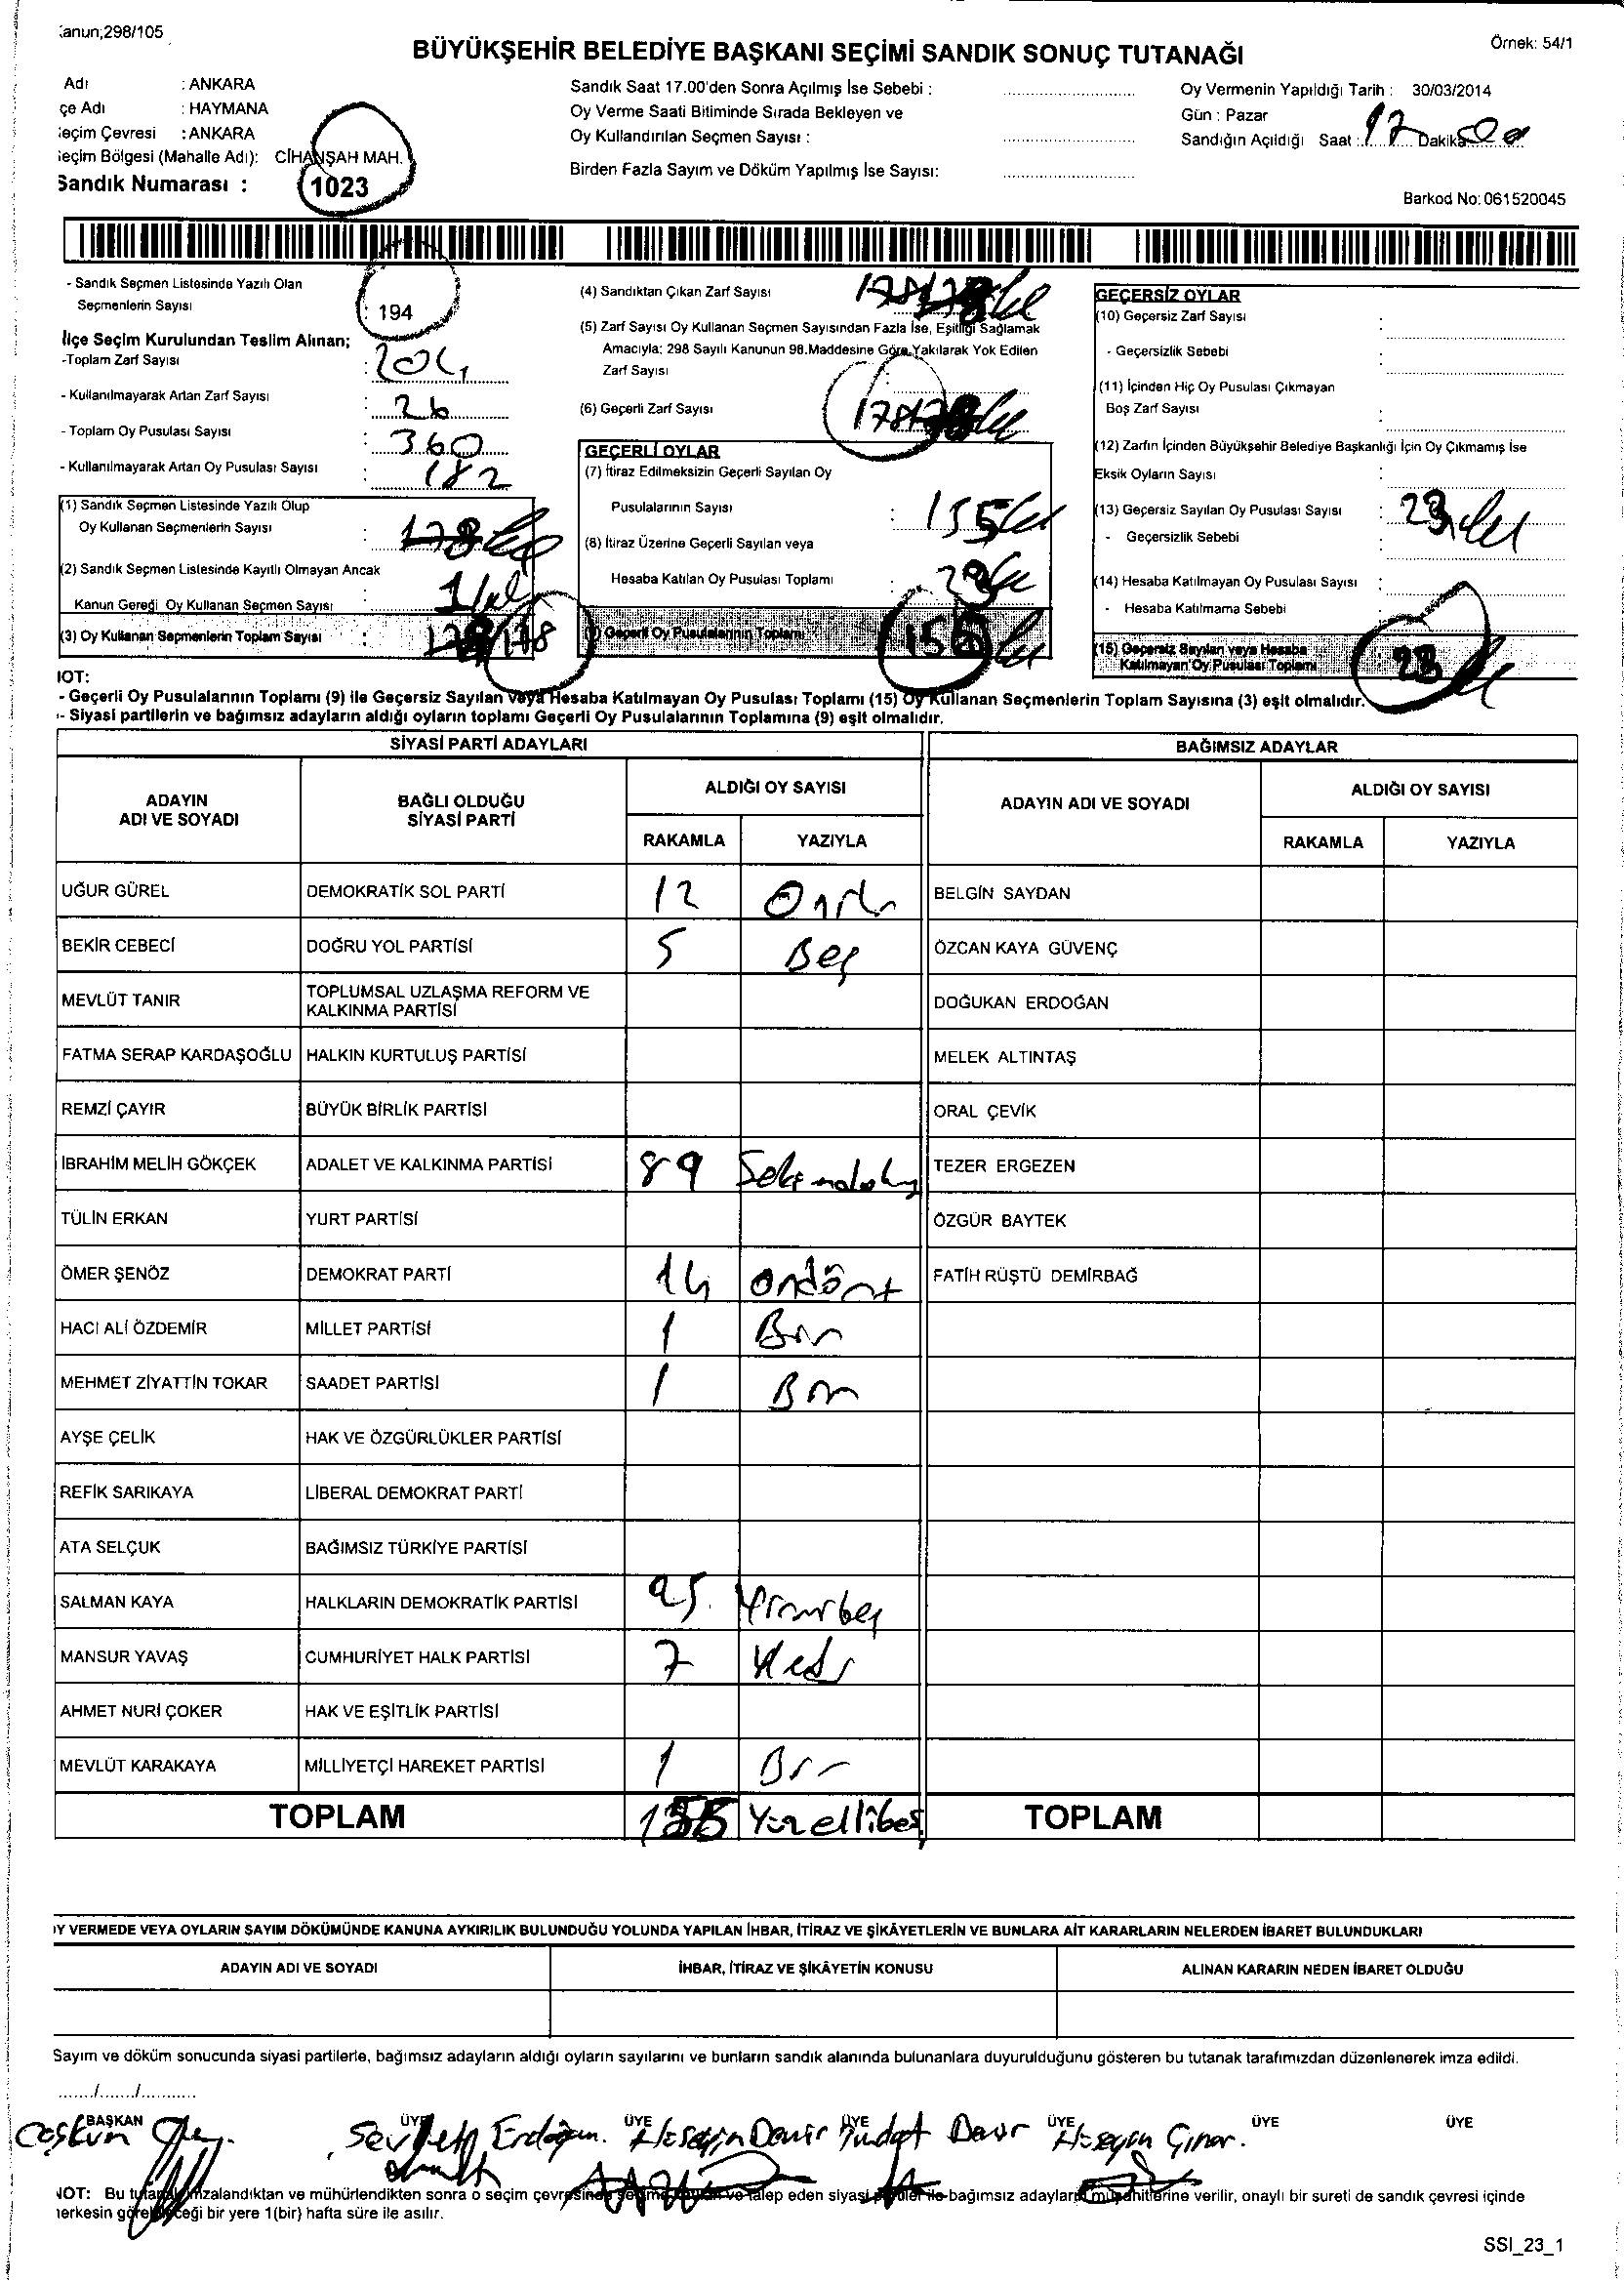 anun;298/105
Örnek: 54/1
BÜYÜKŞEHİR BELEDİYE BAŞKANI SEÇİMİ SANDIK SONUÇ TUTANAĞI
Adı : ANKARA
çe Adı : HAYMANA
eçim Çevresi : ANKARA
eçim Bölgesi (Mahalle Adı): CİHANŞAH MAH.
Sandık Numarası : 1023
Sandık Saat 17.00'den Sonra Açılmış İse Sebebi :
Oy Verme Saati Bitiminde Sırada Bekleyen ve
Oy Kullandırılan Seçmen Sayısı :
Birden Fazla Sayım ve Döküm Yapılmış İse Sayısı:
Oy Vermenin Yapıldığı Tarih : 30/03/2014
Gün : Pazar
Sandığın Açıldığı Saat : 17 Dakika
Barkod No: 061520045
- Sandık Seçmen Listesinde Yazılı Olan
Seçmenlerin Sayısı : 194
İlçe Seçim Kurulundan Teslim Alınan;
-Toplam Zarf Sayısı : 204
- Kullanılmayarak Artan Zarf Sayısı : 26
- Toplam Oy Pusulası Sayısı : 360
- Kullanılmayarak Artan Oy Pusulası Sayısı : 182
(1) Sandık Seçmen Listesinde Yazılı Olup
Oy Kullanan Seçmenlerin Sayısı : 178
(2) Sandık Seçmen Listesinde Kayıtlı Olmayan Ancak
Kanun Gereği Oy Kullanan Seçmen Sayısı : 1
(3) Oy Kullanan Seçmenlerin Toplam Sayısı : 178
(4) Sandıktan Çıkan Zarf Sayısı 178
(5) Zarf Sayısı Oy Kullanan Seçmen Sayısından Fazla İse, Eşitliği Sağlamak
Amacıyla; 298 Sayılı Kanunun 98.Maddesine Göre Yakılarak Yok Edilen
Zarf Sayısı :
(6) Geçerli Zarf Sayısı 178
GEÇERLİ OYLAR
(7) İtiraz Edilmeksizin Geçerli Sayılan Oy
Pusulalarının Sayısı : 155
(8) İtiraz Üzerine Geçerli Sayılan veya
Hesaba Katılan Oy Pusulası Toplamı : 23
Geçerli Oy Pusulalarının Toplamı : 155
GEÇERSİZ OYLAR
(10) Geçersiz Zarf Sayısı :
- Geçersizlik Sebebi :
(11) İçinden Hiç Oy Pusulası Çıkmayan
Boş Zarf Sayısı :
(12) Zarfın İçinden Büyükşehir Belediye Başkanlığı İçin Oy Çıkmamış İse
Eksik Oyların Sayısı :
(13) Geçersiz Sayılan Oy Pusulası Sayısı : 23
- Geçersizlik Sebebi :
(14) Hesaba Katılmayan Oy Pusulası Sayısı :
- Hesaba Katılmama Sebebi :
(15) Geçersiz Sayılan veya Hesaba
Katılmayan Oy Pusulası Toplamı 23
NOT:
- Geçerli Oy Pusulalarının Toplamı (9) ile Geçersiz Sayılan veya Hesaba Katılmayan Oy Pusulası Toplamı (15) Oy Kullanan Seçmenlerin Toplam Sayısına (3) eşit olmalıdır.
- Siyasi partilerin ve bağımsız adayların aldığı oyların toplamı Geçerli Oy Pusulalarının Toplamına (9) eşit olmalıdır.
SİYASİ PARTİ ADAYLARI BAĞIMSIZ ADAYLAR
ADAYIN ADI VE SOYADI BAĞLI OLDUĞU SİYASİ PARTİ ALDIĞI OY SAYISI ADAYIN ADI VE SOYADI ALDIĞI OY SAYISI
RAKAMLA YAZIYLA RAKAMLA YAZIYLA
UĞUR GÜREL DEMOKRATİK SOL PARTİ 12 BELGİN SAYDAN
BEKİR CEBECİ DOĞRU YOL PARTİSİ 5 Beş ÖZCAN KAYA GÜVENÇ
MEVLÜT TANIR TOPLUMSAL UZLAŞMA REFORM VE KALKINMA PARTİSİ DOĞUKAN ERDOĞAN
FATMA SERAP KARDAŞOĞLU HALKIN KURTULUŞ PARTİSİ MELEK ALTINTAŞ
REMZİ ÇAYIR BÜYÜK BİRLİK PARTİSİ ORAL ÇEVİK
İBRAHİM MELİH GÖKÇEK ADALET VE KALKINMA PARTİSİ 89 TEZER ERGEZEN
TÜLİN ERKAN YURT PARTİSİ ÖZGÜR BAYTEK
ÖMER ŞENÖZ DEMOKRAT PARTİ 14 ondört FATİH RÜŞTÜ DEMİRBAĞ
HACI ALİ ÖZDEMİR MİLLET PARTİSİ 1 Bir
MEHMET ZİYATTİN TOKAR SAADET PARTİSİ 1 Bir
AYŞE ÇELİK HAK VE ÖZGÜRLÜKLER PARTİSİ
REFİK SARIKAYA LİBERAL DEMOKRAT PARTİ
ATA SELÇUK BAĞIMSIZ TÜRKİYE PARTİSİ
SALMAN KAYA HALKLARIN DEMOKRATİK PARTİSİ 25 Yirmibeş
MANSUR YAVAŞ CUMHURİYET HALK PARTİSİ 7 Yedi
AHMET NURİ ÇOKER HAK VE EŞİTLİK PARTİSİ
MEVLÜT KARAKAYA MİLLİYETÇİ HAREKET PARTİSİ 1 Bir
TOPLAM 155 Yüzellibeş TOPLAM
Y VERMEDE VEYA OYLARIN SAYIM DÖKÜMÜNDE KANUNA AYKIRILIK BULUNDUĞU YOLUNDA YAPILAN İHBAR, İTİRAZ VE ŞİKÂYETLERİN VE BUNLARA AİT KARARLARIN NELERDEN İBARET BULUNDUKLARI
ADAYIN ADI VE SOYADI İHBAR, İTİRAZ VE ŞİKÂYETİN KONUSU ALINAN KARARIN NEDEN İBARET OLDUĞU
Sayım ve döküm sonucunda siyasi partilerle, bağımsız adayların aldığı oyların sayılarını ve bunların sandık alanında bulunanlara duyurulduğunu gösteren bu tutanak tarafımızdan düzenlenerek imza edildi.
......./......./...........
BAŞKAN ÜYE ÜYE ÜYE ÜYE ÜYE ÜYE
Coşkun Erdoğan. Hüseyin Demir Hüseyin Çınar.
NOT: Bu tutanak imzalandıktan ve mühürlendikten sonra o seçim çevresinde seçime katılan ve talep eden siyasi partiler ile bağımsız adayların müşahitlerine verilir, onaylı bir sureti de sandık çevresi içinde
herkesin görebileceği bir yere 1(bir) hafta süre ile asılır.
SSI_23_1